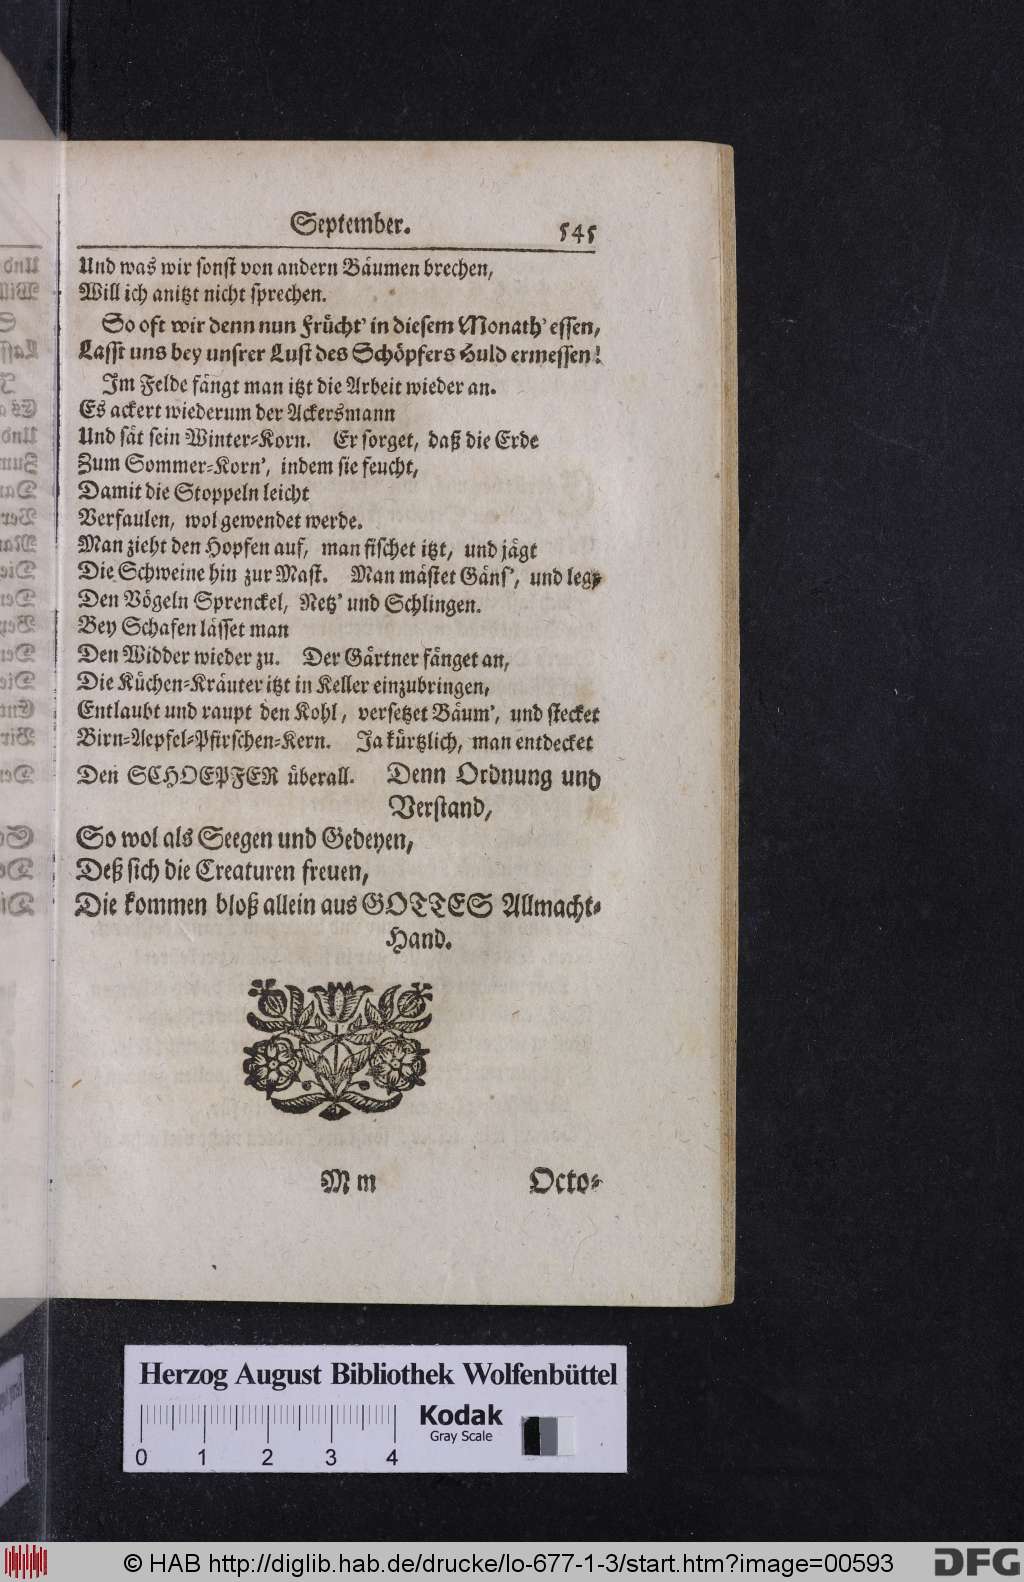 September. 545
Und was wir sonst von andern Bäumen brechen,
Will ich anitzt nicht sprechen.
So oft wir denn nun Frücht' in diesem Monath' essen,
Lasst uns bey unsrer Lust des Schöpfers Huld ermessen!
Im Felde fängt man itzt die Arbeit wieder an.
Es ackert wiederum der Ackersmann
Und sät sein Winter-Korn. Er sorget, daß die Erde
Zum Sommer-Korn', indem sie feucht,
Damit die Stoppeln leicht
Verfaulen, wol gewendet werde.
Man zieht den Hopfen auf, man fischet itzt, und jägt
Die Schweine hin zur Mast. Man mästet Gäns', und legt
Den Vögeln Sprenckel, Netz' und Schlingen.
Bey Schafen lässet man
Den Widder wieder zu. Der Gärtner fänget an,
Die Küchen-Kräuter itzt in Keller einzubringen,
Entlaubt und raupt den Kohl, versetzet Bäum', und stecket
Birn-Aepfel-Pfirschen-Kern. Ja kürtzlich, man entdecket
Den SCHOEPFER überall. Denn Ordnung und
Verstand,
So wol als Seegen und Gedeyen,
Deß sich die Creaturen freuen,
Die kommen bloß allein aus GOTTES Allmacht-
Hand.
M m Octo-
Herzog August Bibliothek Wolfenbüttel
Kodak
Gray Scale
0 1 2 3 4
© HAB http://diglib.hab.de/drucke/lo-677-1-3/start.htm?image=00593
DFG